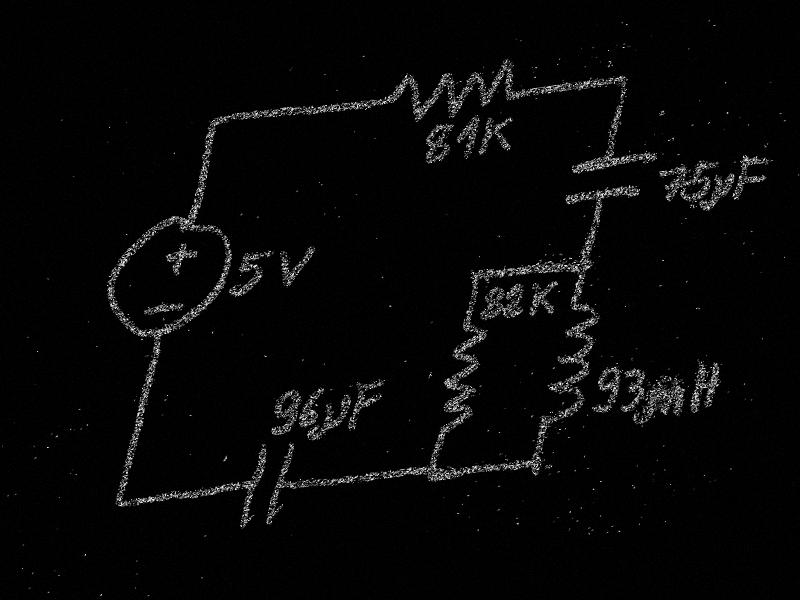 81K
75µF
+
5V
−
82K
93mH
96µF